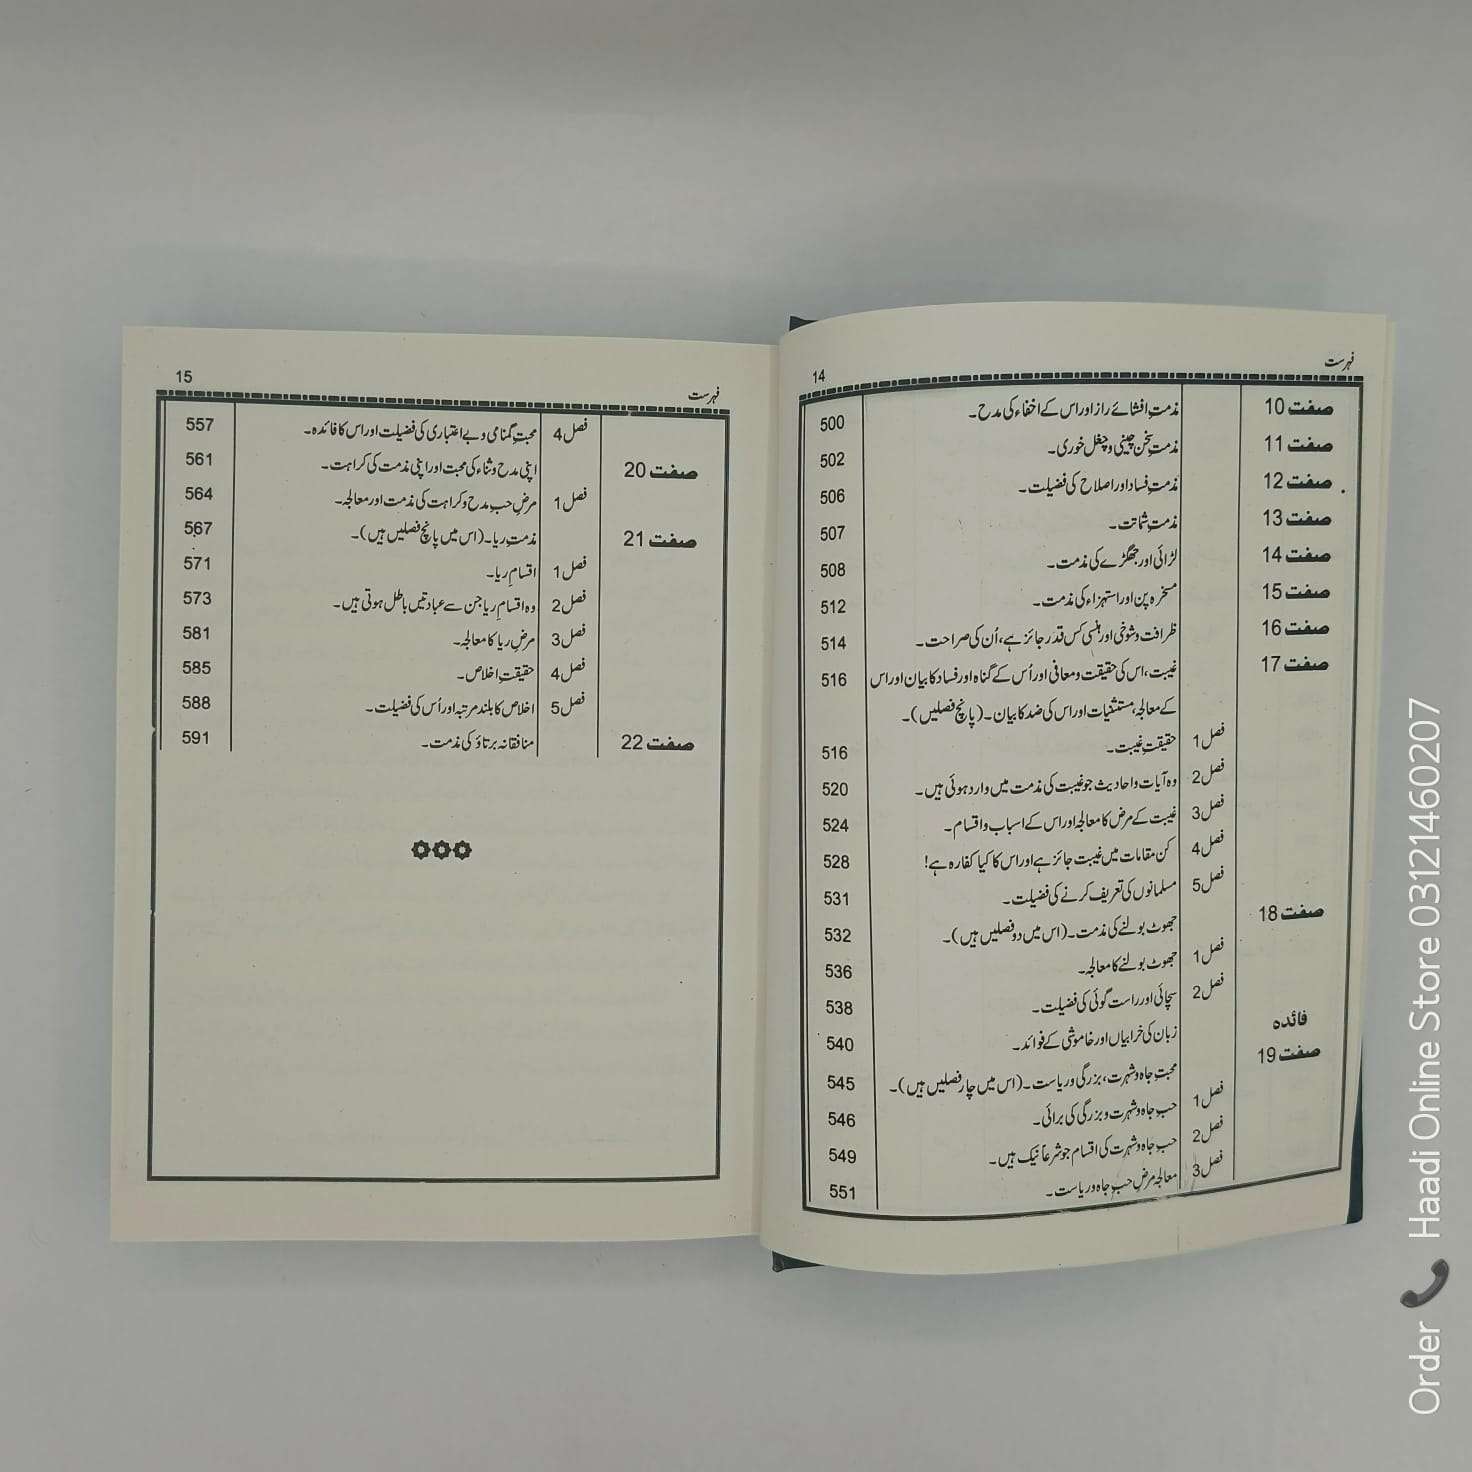 فہرست
14
صفت 10 مذمتِ افشائے راز اور اس کے اخفاء کی مدح۔ 500
صفت 11 مذمتِ سخن چینی و چغل خوری۔ 502
صفت 12 مذمتِ فساد اور اصلاح کی فضیلت۔ 506
صفت 13 مذمتِ شماتت۔ 507
صفت 14 لڑائی اور جھگڑے کی مذمت۔ 508
صفت 15 مسخرہ پن اور استہزاء کی مذمت۔ 512
صفت 16 ظرافت و شوخی اور ہنسی کس قدر جائز ہے، اُن کی صراحت۔ 514
صفت 17 غیبت، اس کی حقیقت و معافی اور اُس کے گناہ اور فساد کا بیان اور اس 516
کے معالجہ، مستثنیات اور اس کی ضد کا بیان۔ (پانچ فصلیں)۔
فصل 1 حقیقتِ غیبت۔ 516
فصل 2 وہ آیات و احادیث جو غیبت کی مذمت میں وارد ہوئی ہیں۔ 520
فصل 3 غیبت کے مرض کا معالجہ اور اس کے اسباب و اقسام۔ 524
فصل 4 کن مقامات میں غیبت جائز ہے اور اس کا کیا کفارہ ہے! 528
فصل 5 مسلمانوں کی تعریف کرنے کی فضیلت۔ 531
صفت 18 جھوٹ بولنے کی مذمت۔ (اس میں دو فصلیں ہیں)۔ 532
فصل 1 جھوٹ بولنے کا معالجہ۔ 536
فصل 2 سچائی اور راست گوئی کی فضیلت۔ 538
فائدہ زبان کی خرابیاں اور خاموشی کے فوائد۔ 540
صفت 19 محبتِ جاہ و شہرت، بزرگی و ریاست۔ (اس میں چار فصلیں ہیں)۔ 545
فصل 1 حبِ جاہ و شہرت و بزرگی کی برائی۔ 546
فصل 2 حبِ جاہ و شہرت کی اقسام جو شرعاً نیک ہیں۔ 549
فصل 3 معالجہ مرضِ حبِ جاہ و ریاست۔ 551
فہرست
15
فصل 4 محبتِ گمنامی و بے اعتباری کی فضیلت اور اس کا فائدہ۔ 557
صفت 20 اپنی مدح و ثناء کی محبت اور اپنی مذمت کی کراہت۔ 561
فصل 1 مرضِ حبِ مدح و کراہت کی مذمت اور معالجہ۔ 564
صفت 21 مذمتِ ریا۔ (اس میں پانچ فصلیں ہیں)۔ 567
فصل 1 اقسامِ ریا۔ 571
فصل 2 وہ اقسامِ ریا جن سے عبادتیں باطل ہوتی ہیں۔ 573
فصل 3 مرضِ ریا کا معالجہ۔ 581
فصل 4 حقیقتِ اخلاص۔ 585
فصل 5 اخلاص کا بلند مرتبہ اور اُس کی فضیلت۔ 588
صفت 22 منافقانہ برتاؤ کی مذمت۔ 591
Order 📞 Haadi Online Store 03121460207